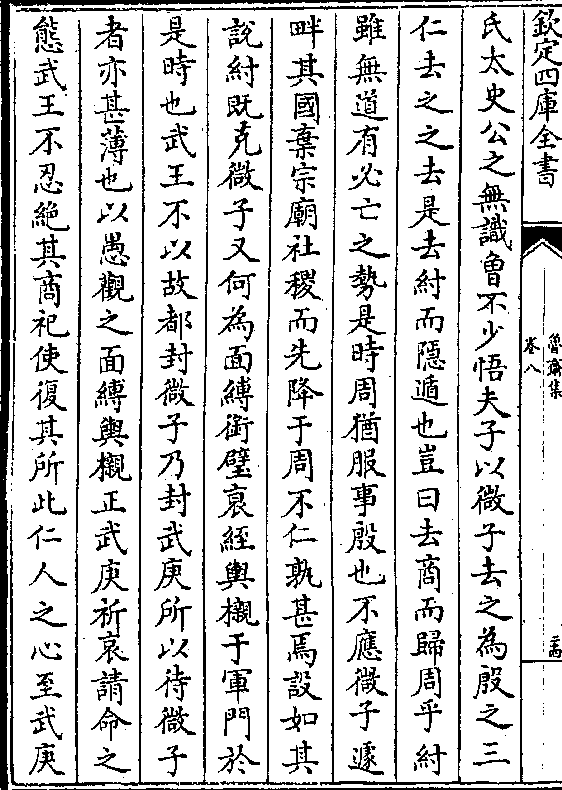 欽定四庫全書
魯齋集
卷八
二十四
氏太史公之無識曾不少悟夫子以微子去之為殷之三
仁去之之去是去紂而隱遁也豈曰去商而歸周乎紂
雖無道有必亡之勢是時周猶服事殷也不應微子遽
畔其國棄宗廟社稷而先降于周不仁孰甚焉設如其
說紂既克微子又何為面縛銜璧衰絰輿櫬于軍門於
是時也武王不以故都封微子乃封武庚所以待微子
者亦甚薄也以愚觀之面縛輿櫬正武庚祈哀請命之
態武王不忍絶其商祀使復其所此仁人之心至武庚